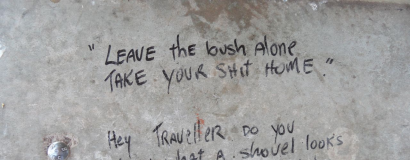 " LEAVE the bush Alone
TAKE YOUR SHIT HOME."
Hey TRAVellER DO YOU
what A shovel looks